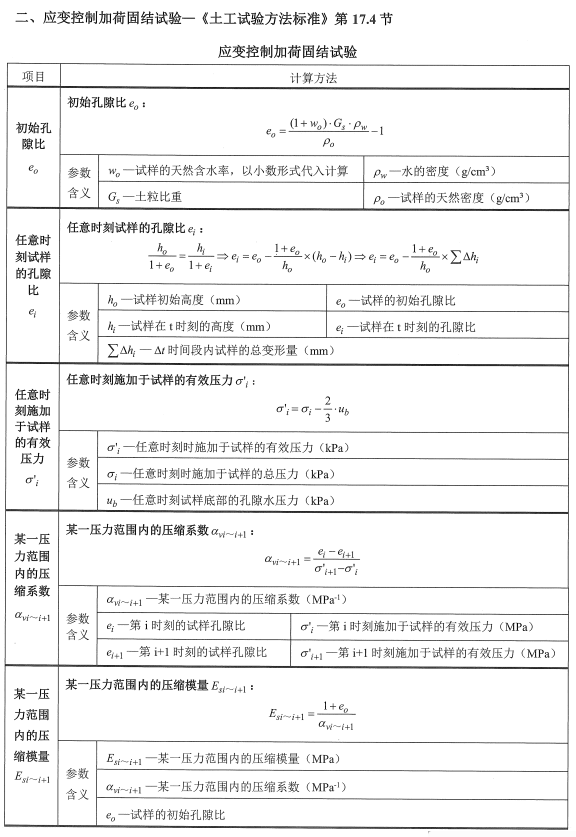 二、应变控制加荷固结试验—《土工试验方法标准》第 17.4 节
应变控制加荷固结试验
项目
计算方法
初始孔隙比 e_o
初始孔隙比 e_o：
e_o = (1+w_o)·G_s·ρ_w / ρ_o −1
参数含义
w_o —试样的天然含水率，以小数形式代入计算
ρ_w —水的密度（g/cm³）
G_s —土粒比重
ρ_o —试样的天然密度（g/cm³）
任意时刻试样的孔隙比 e_i
任意时刻试样的孔隙比 e_i：
h_o / (1+e_o) = h_i / (1+e_i) ⇒ e_i = e_o − (1+e_o) / h_o × (h_o − h_i) ⇒ e_i = e_o − (1+e_o) / h_o × ∑Δh_i
参数含义
h_o —试样初始高度（mm）
e_o —试样的初始孔隙比
h_i —试样在 t 时刻的高度（mm）
e_i —试样在 t 时刻的孔隙比
∑Δh_i — Δt 时间段内试样的总变形量（mm）
任意时刻施加于试样的有效压力 σ'_i
任意时刻施加于试样的有效压力 σ'_i：
σ'_i = σ_i − 2/3 · u_b
参数含义
σ'_i —任意时刻时施加于试样的有效压力（kPa）
σ_i —任意时刻时施加于试样的总压力（kPa）
u_b —任意时刻试样底部的孔隙水压力（kPa）
某一压力范围内的压缩系数 α_vi～i+1
某一压力范围内的压缩系数 α_vi～i+1：
α_vi～i+1 = (e_i − e_i+1) / (σ'_i+1 − σ'_i)
参数含义
α_vi～i+1 —某一压力范围内的压缩系数（MPa⁻¹）
e_i —第 i 时刻的试样孔隙比
σ'_i —第 i 时刻施加于试样的有效压力（MPa）
e_i+1 —第 i+1 时刻的试样孔隙比
σ'_i+1 —第 i+1 时刻施加于试样的有效压力（MPa）
某一压力范围内的压缩模量 E_si～i+1
某一压力范围内的压缩模量 E_si～i+1：
E_si～i+1 = (1+e_o) / α_vi～i+1
参数含义
E_si～i+1 —某一压力范围内的压缩模量（MPa）
α_vi～i+1 —某一压力范围内的压缩系数（MPa⁻¹）
e_o —试样的初始孔隙比